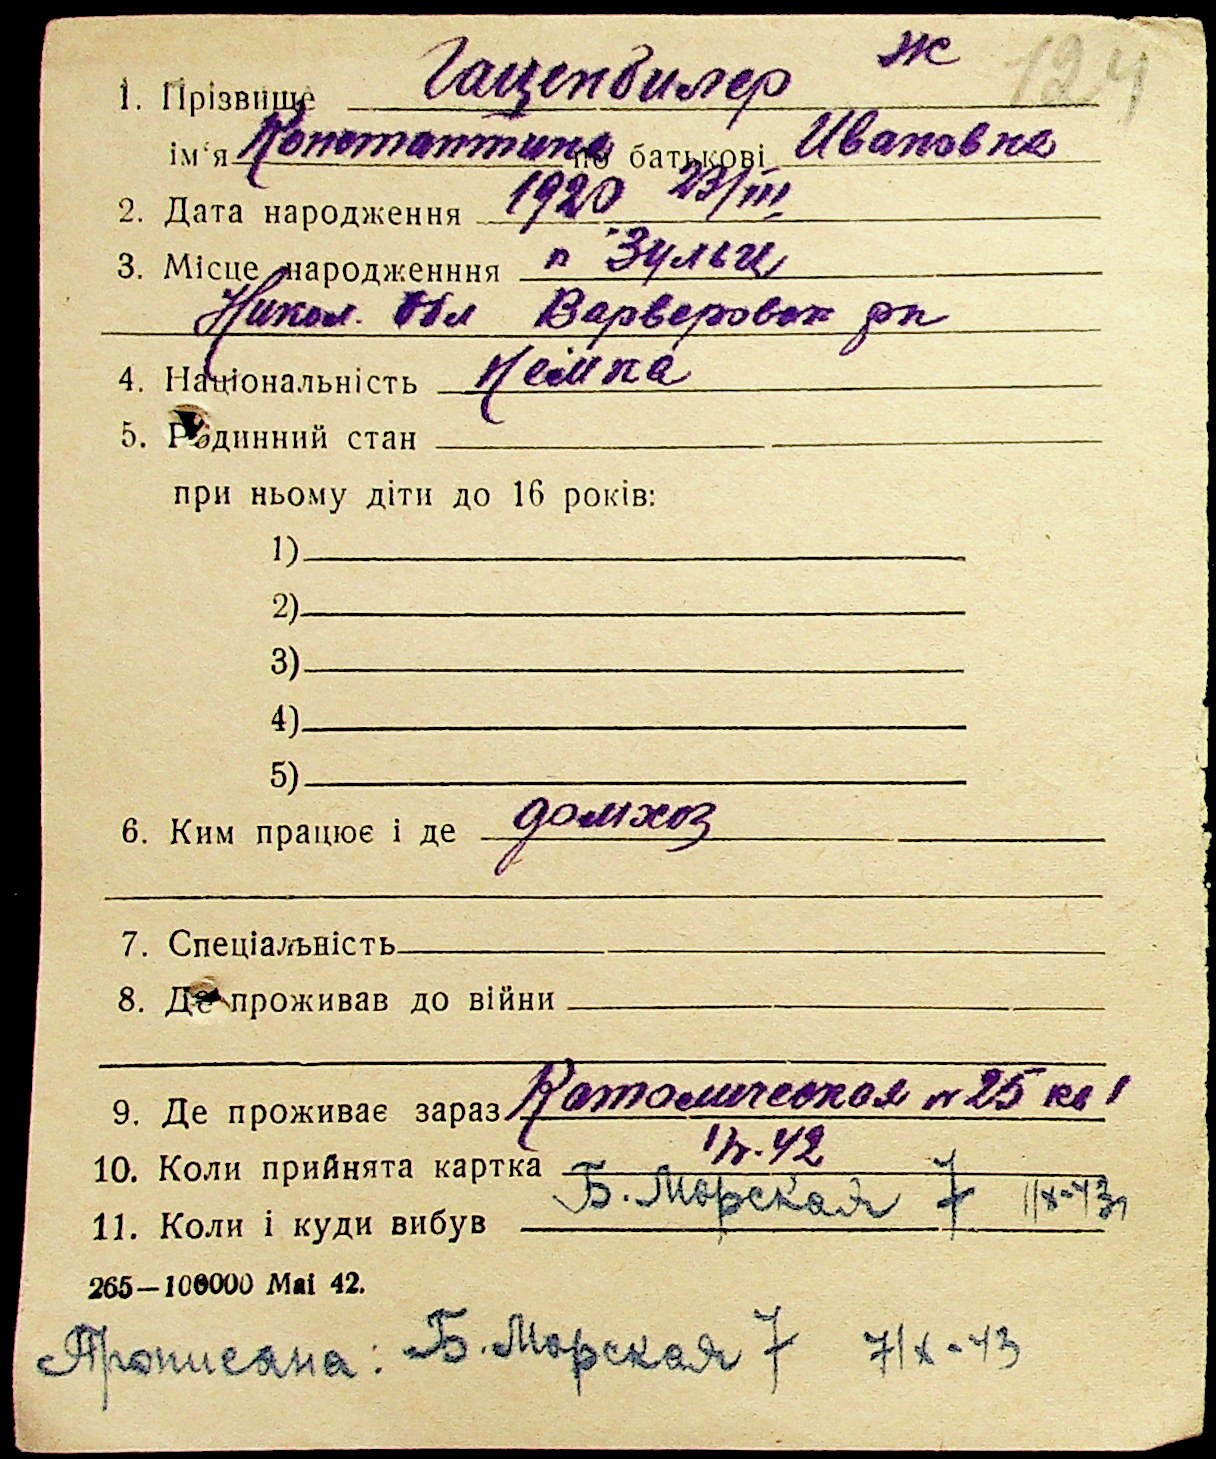 124
1. Прізвище Гаценбилер Ж
ім'я Константина по батькові Ивановна
2. Дата народження 1920 23/III
3. Місце народженння п Зульц
Никол. Обл Варверовск рн
4. Національність Немка
5. Родинний стан
при ньому діти до 16 років:
1)
2)
3)
4)
5)
6. Ким працює і де домхоз
7. Спеціальність
8. Де проживав до війни
9. Де проживає зараз Католическая № 25 кв 1
10. Коли прийнята картка 42
11. Коли і куди вибув Б. Морская 7
265—100000 Mai 42.
Прописана: Б. Морская 7 7/X-43